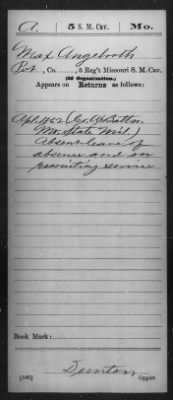 A. 5 S. M. Cav. Mo.
Max Angebroth
Pvt, Co. , 5 Reg't Missouri S. M. Cav.
(2d Organization.)
Appears on Returns as follows:
Apl. 1862 (Co. A, Battn.
Mo. State Mil.)
Absent leave of
absence and on
recruiting service
Book Mark:
(546) Dunton
Copyist.